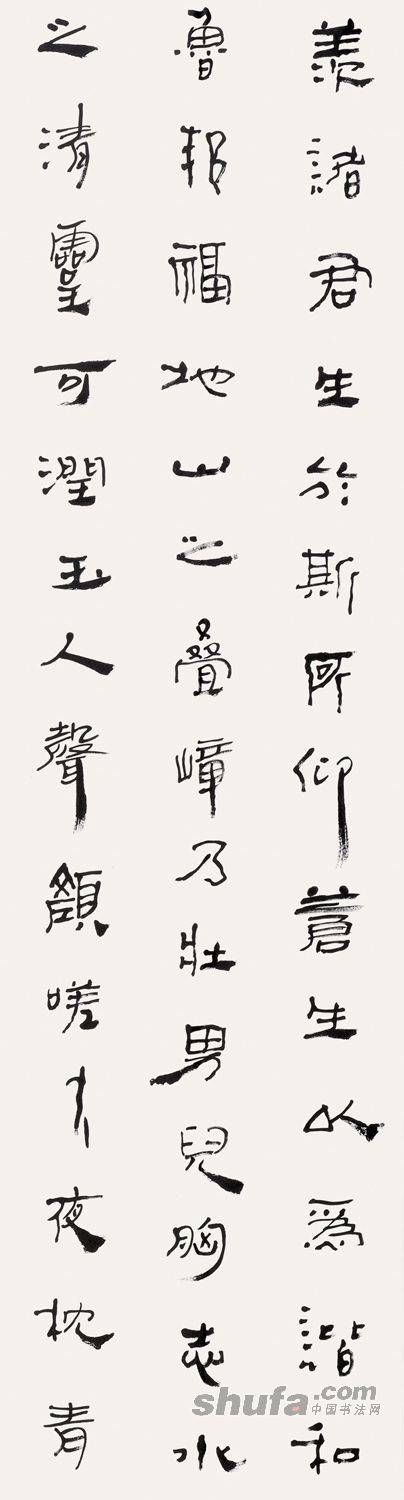 羨諸君生於斯所仰蒼生以爲諧和
魯邦福地山之疊嶂乃壯男兒胸志水
之清靈可潤玉人聲顏嗟夜枕青
shufa.com
中国书法网